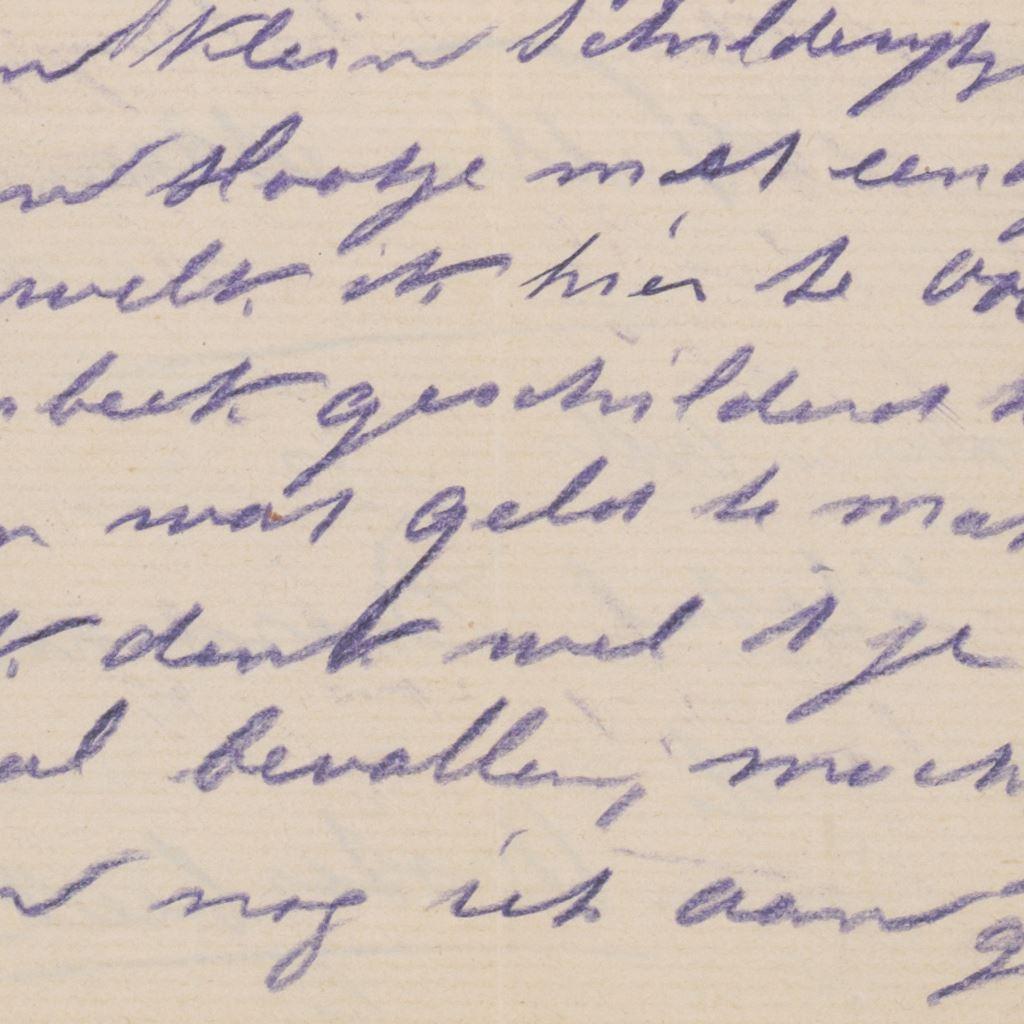 n klein schilderijtj
n slootje met eend
welk ik hier te Oo
beek geschilderd h
n wat geld te mak
k denk wel 't je
al bevallen, moch
n nog iets aan g